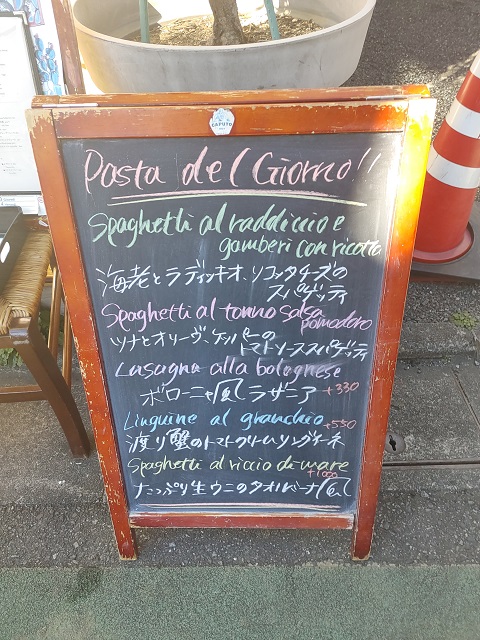 CAPUTO
Pasta del Giorno!!
Spaghetti al raddiccio e
gamberi con ricotta
海老とラディッキオ、リコッタチーズの
スパゲッティ
Spaghetti al tonno salsa
pomodoro
ツナとオリーヴ、ケッパーの
トマトソーススパゲッティ
Lasagna alla bolognese
ボローニャ風ラザニア +330
Linguine al granchio +550
渡り蟹のトマトクリームリングイーネ
Spaghetti al riccio di mare
+1000
たっぷり生ウニのタオルミーナ風